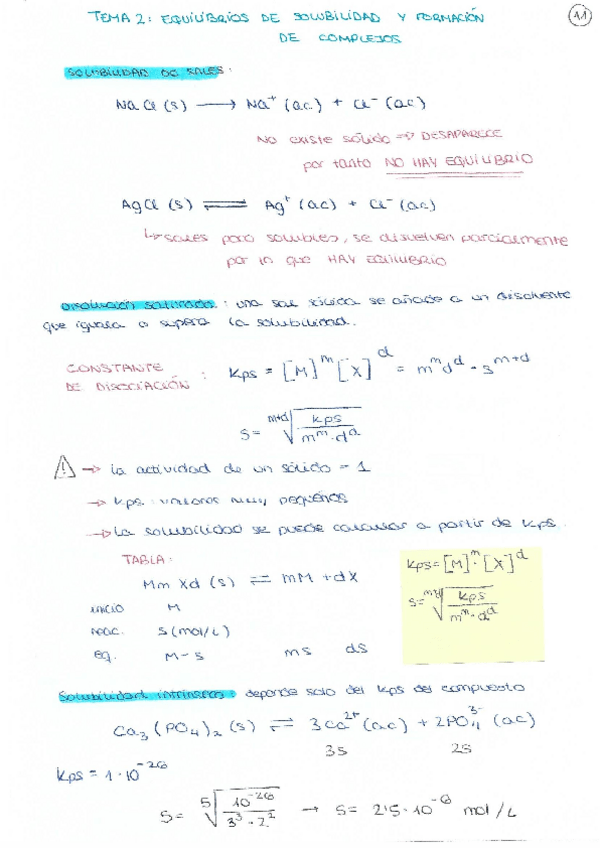 TEMA 2: EQUILIBRIOS DE SOLUBILIDAD Y FORMACIÓN
11
DE COMPLEJOS
SOLUBILIDAD DE SALES:
NaCl (s) ⟶ Na⁺ (ac) + Cl⁻ (ac)
NO existe sólido ⇒ DESAPARECE
por tanto NO HAY EQUILIBRIO
AgCl (s) ⇌ Ag⁺ (ac) + Cl⁻ (ac)
↳ sales poco solubles, se disuelven parcialmente
por lo que HAY EQUILIBRIO
Disolución saturada: una sal sólida se añade a un disolvente
que iguala o supera la solubilidad.
CONSTANTE
DE DISOCIACIÓN : Kps = [M]ᵐ [X]ᵈ = mᵐdᵈ · sᵐ⁺ᵈ
s = ᵐ⁺ᵈ√(kps / mᵐ·dᵈ)
⚠ → la actividad de un sólido = 1
→ kps: valores muy pequeños
→ La solubilidad se puede calcular a partir de kps.
TABLA:
Mm Xd (s) ⇌ mM + dX
inicio M
reac. s (mol/L)
eq. M-s ms ds
kps = [M]ᵐ · [X]ᵈ
s = ᵐ⁺ᵈ√(kps / mᵐ·dᵈ)
Solubilidad intrínseca: depende solo del kps del compuesto
Ca₃(PO₄)₂ (s) ⇌ 3Ca²⁺ (ac) + 2PO₄³⁻ (ac)
3s 2s
kps = 1·10⁻²⁶
s = ⁵√(10⁻²⁶ / 3³·2²) → s = 2'5·10⁻⁶ mol/L